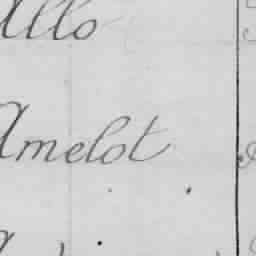 Allo
Amelot